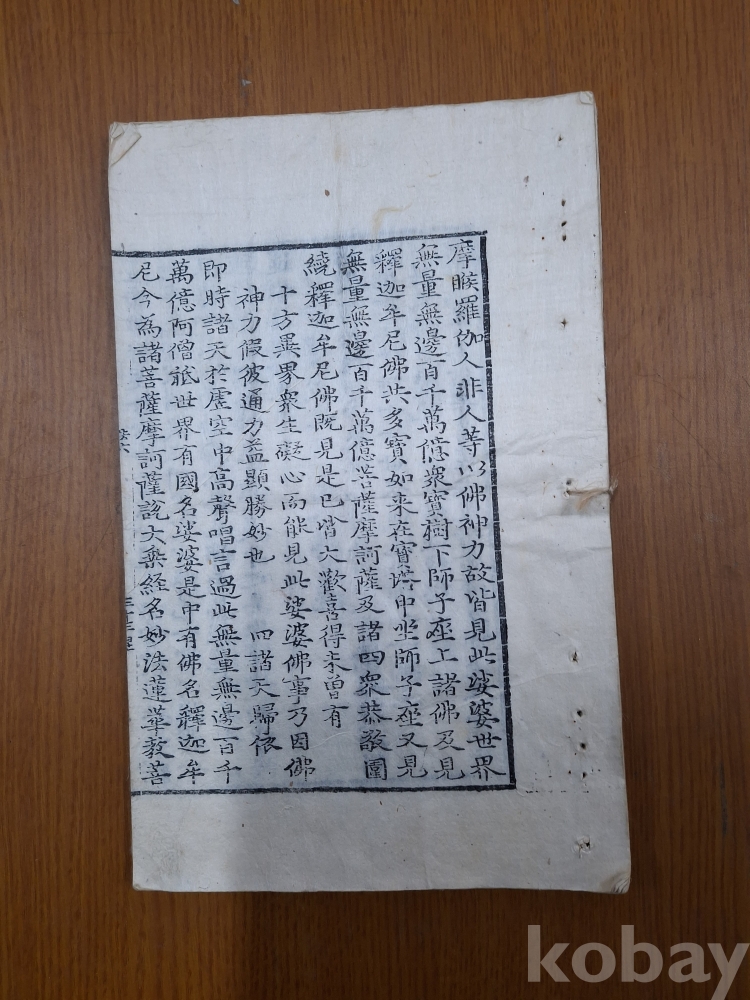 摩睺羅伽人非人等以佛神力故皆見此娑婆世界
無量無邊百千萬億衆寶樹下師子座上諸佛及見
釋迦牟尼佛共多寶如来在寶塔中坐師子座又見
無量無邊百千萬億菩薩摩訶薩及諸四衆恭敬圍
繞釋迦牟尼佛既見是已皆大歡喜得未曾有
十方異界衆生礙心而能見此娑婆佛事乃因佛
神力假彼通力益顯勝妙也 四諸天歸依
即時諸天於虛空中高聲唱言過此無量無邊百千
萬億阿僧祇世界有國名娑婆是中有佛名釋迦牟
尼今為諸菩薩摩訶薩說大乗経名妙法蓮華教菩
kobay